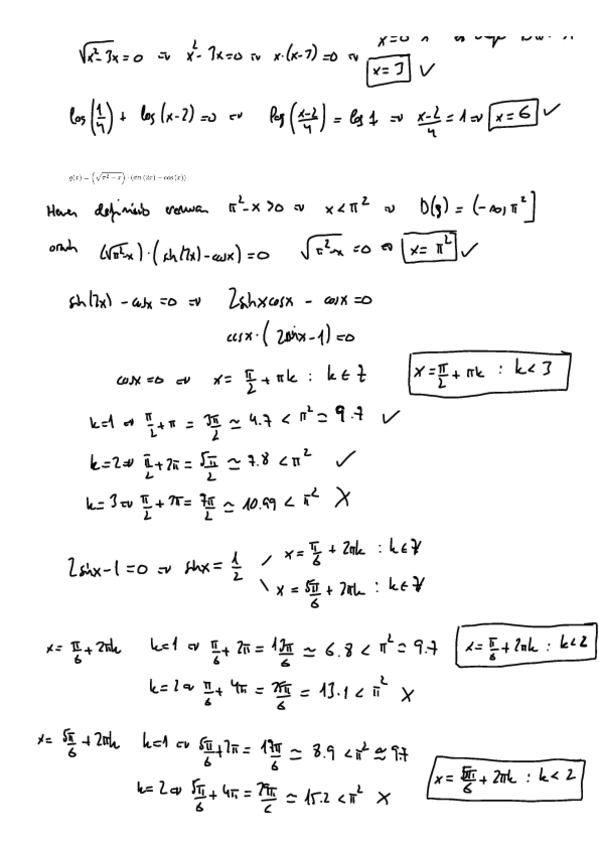 x=0
√x²-3x = 0 ⇒ x²-3x=0 ⇒ x·(x-3)=0 ⇒ x=3 ✓
log(1/4) + log(x-2)=0 ⇒ log((x-2)/4) = log 1 ⇒ (x-2)/4 = 1 ⇒ x=6 ✓
g(x) = (√π² − x) · (sin (2x) − cos (x))
π²-x>0 ⇒ x<π² ⇒ D(g) = (-∞, π²]
(√π²-x)·(sin(2x)-cosx)=0 √π²-x =0 ⇒ x=π² ✓
sin(2x) - cosx =0 ⇒ 2sinxcosx - cosx=0
cosx·(2sinx-1)=0
cosx=0 ⇒ x= π/2 + πk : k∈Z x=π/2 + πk : k<3
k=1 ⇒ π/2+π = 3π/2 ≃ 4.7 < π² ≃ 9.7 ✓
k=2 ⇒ π/2+2π = 5π/2 ≃ 7.8 <π² ✓
k=3 ⇒ π/2+3π = 7π/2 ≃ 10.99 < π² X
2sinx-1=0 ⇒ sinx= 1/2 / x=π/6 + 2πk : k∈Z
\ x=5π/6 + 2πk : k∈Z
x= π/6+2πk k=1 ⇒ π/6+2π = 13π/6 ≃ 6.8 < π² ≃ 9.7 x=π/6+2πk : k<2
k=2 ⇒ π/6+4π = 25π/6 = 13.1 < π² X
x= 5π/6 +2πk k=1 ⇒ 5π/6+2π = 17π/6 ≃ 8.9 <π² ≃ 9.7
k=2 ⇒ 5π/6+4π = 29π/6 ≃ 15.2 <π² X x= 5π/6 + 2πk : k<2